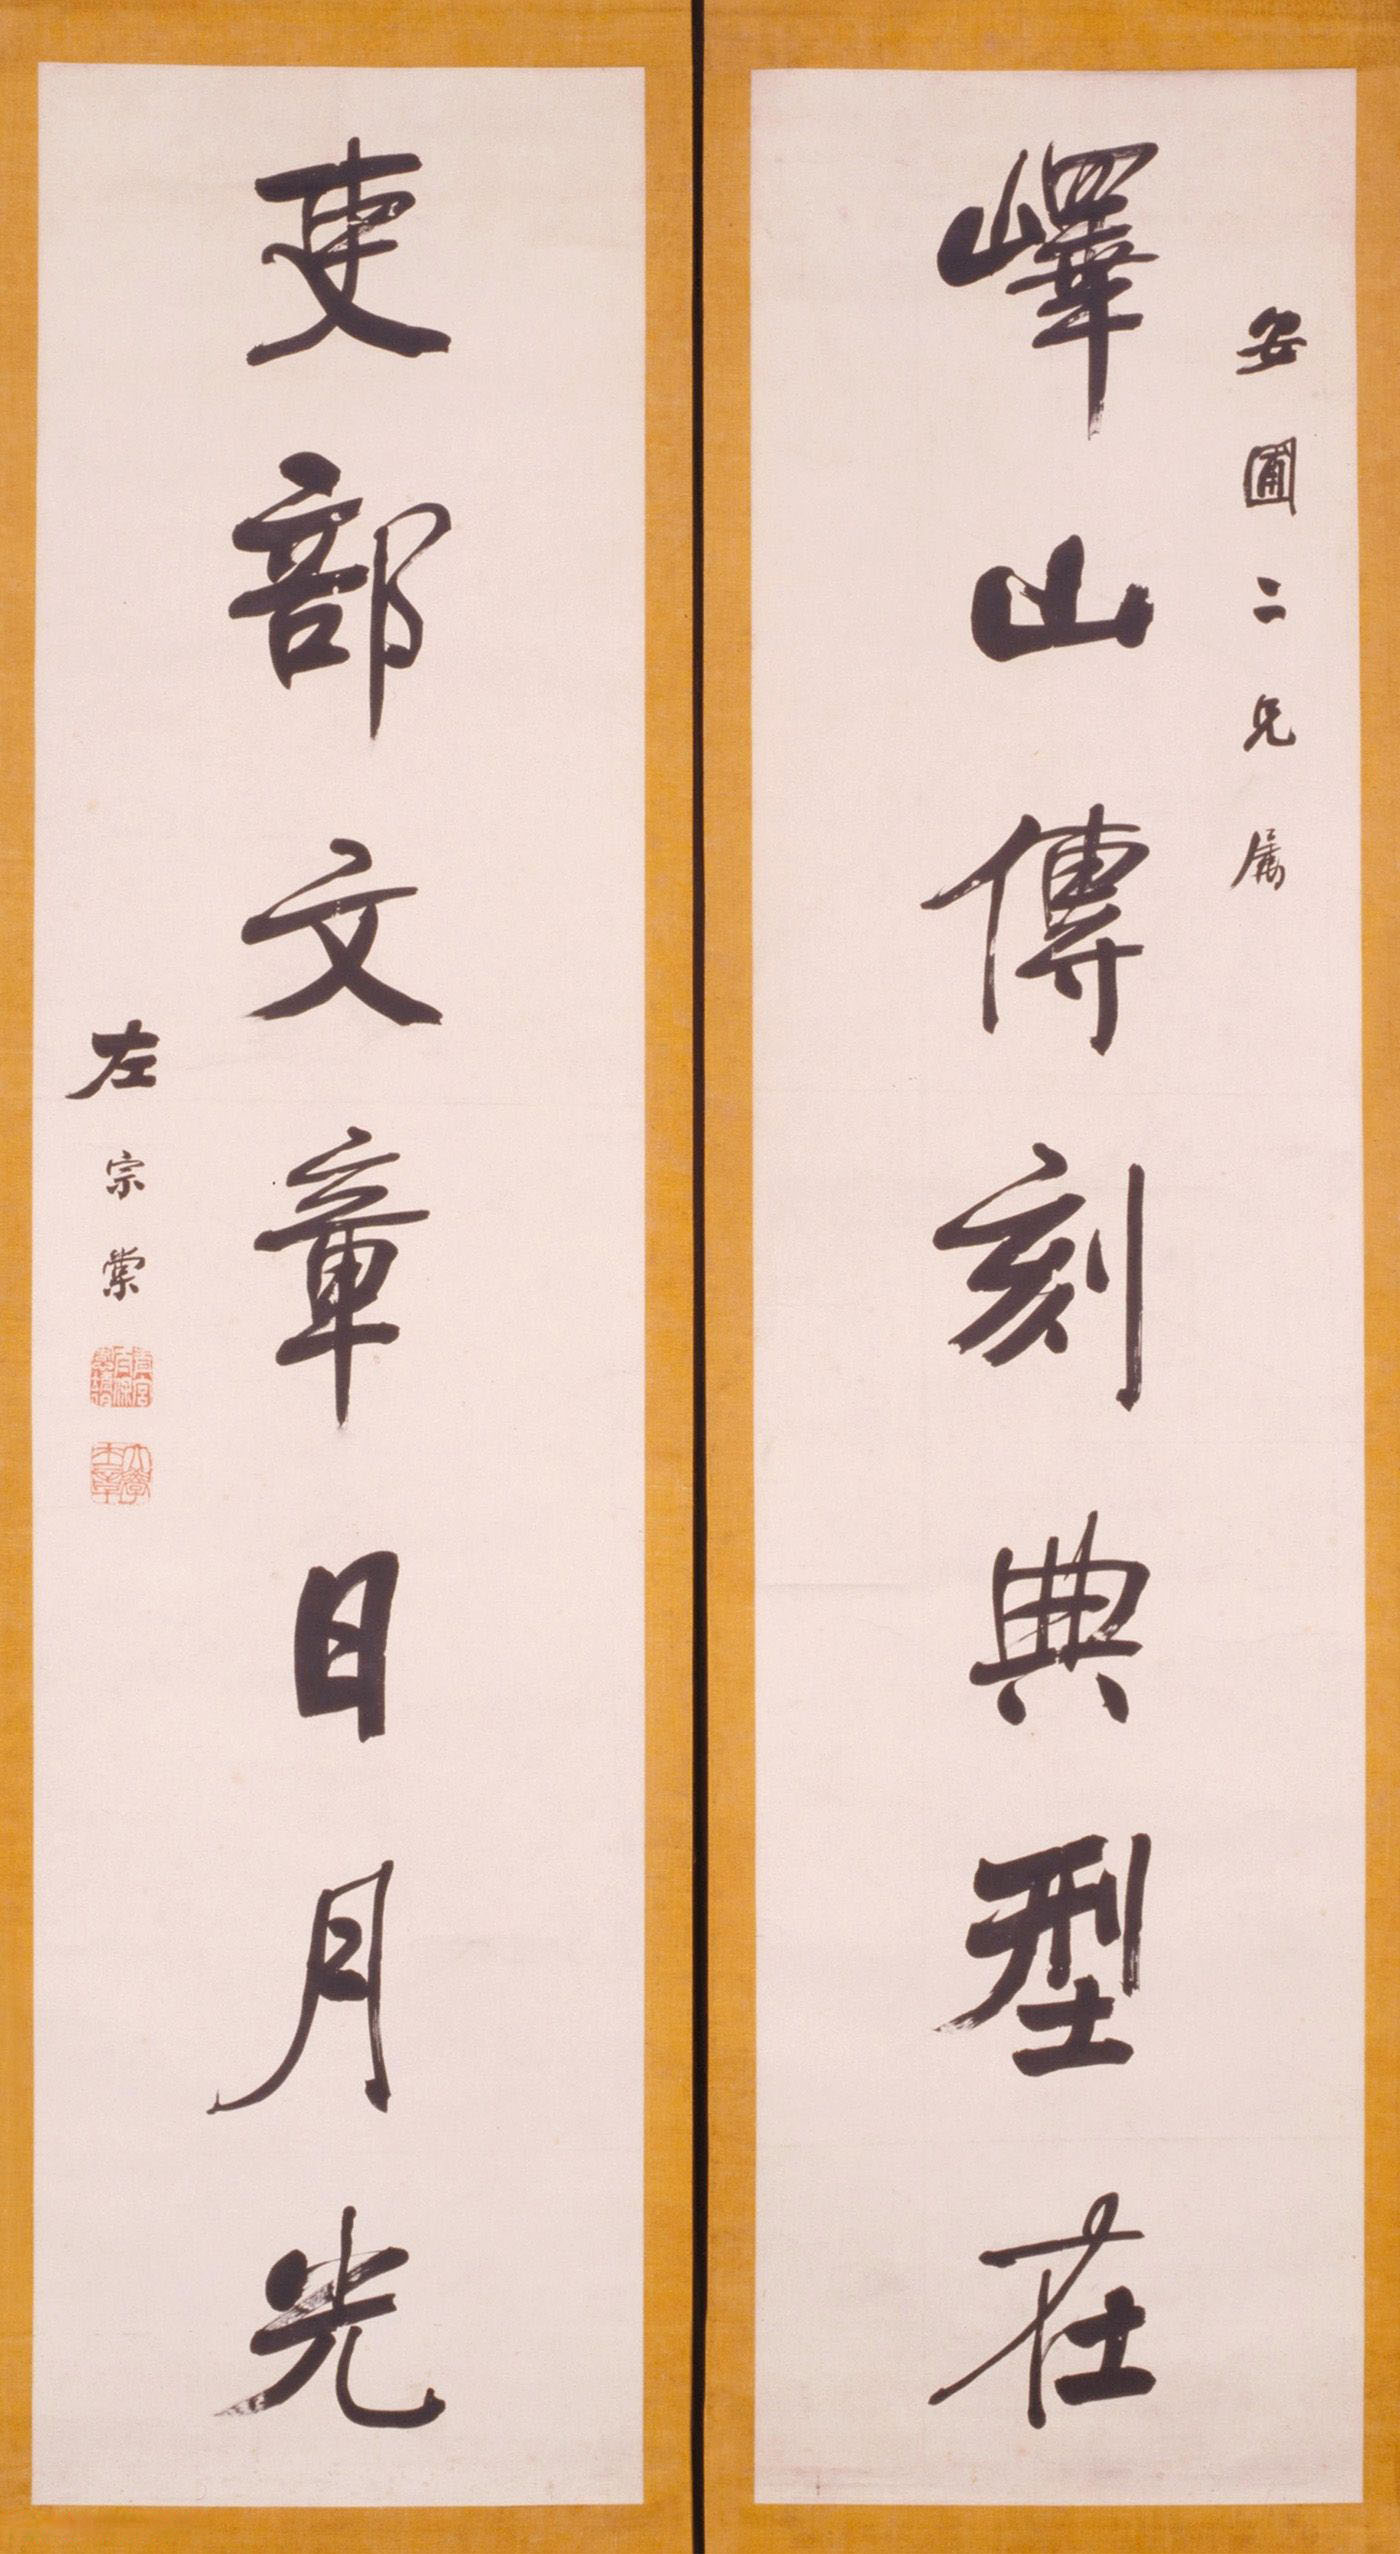 安圃二兄属
嶧山傳刻典型在
吏部文章日月光
左宗棠